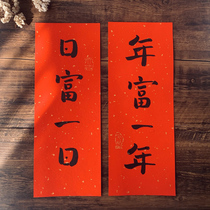 年富一年
日富一日